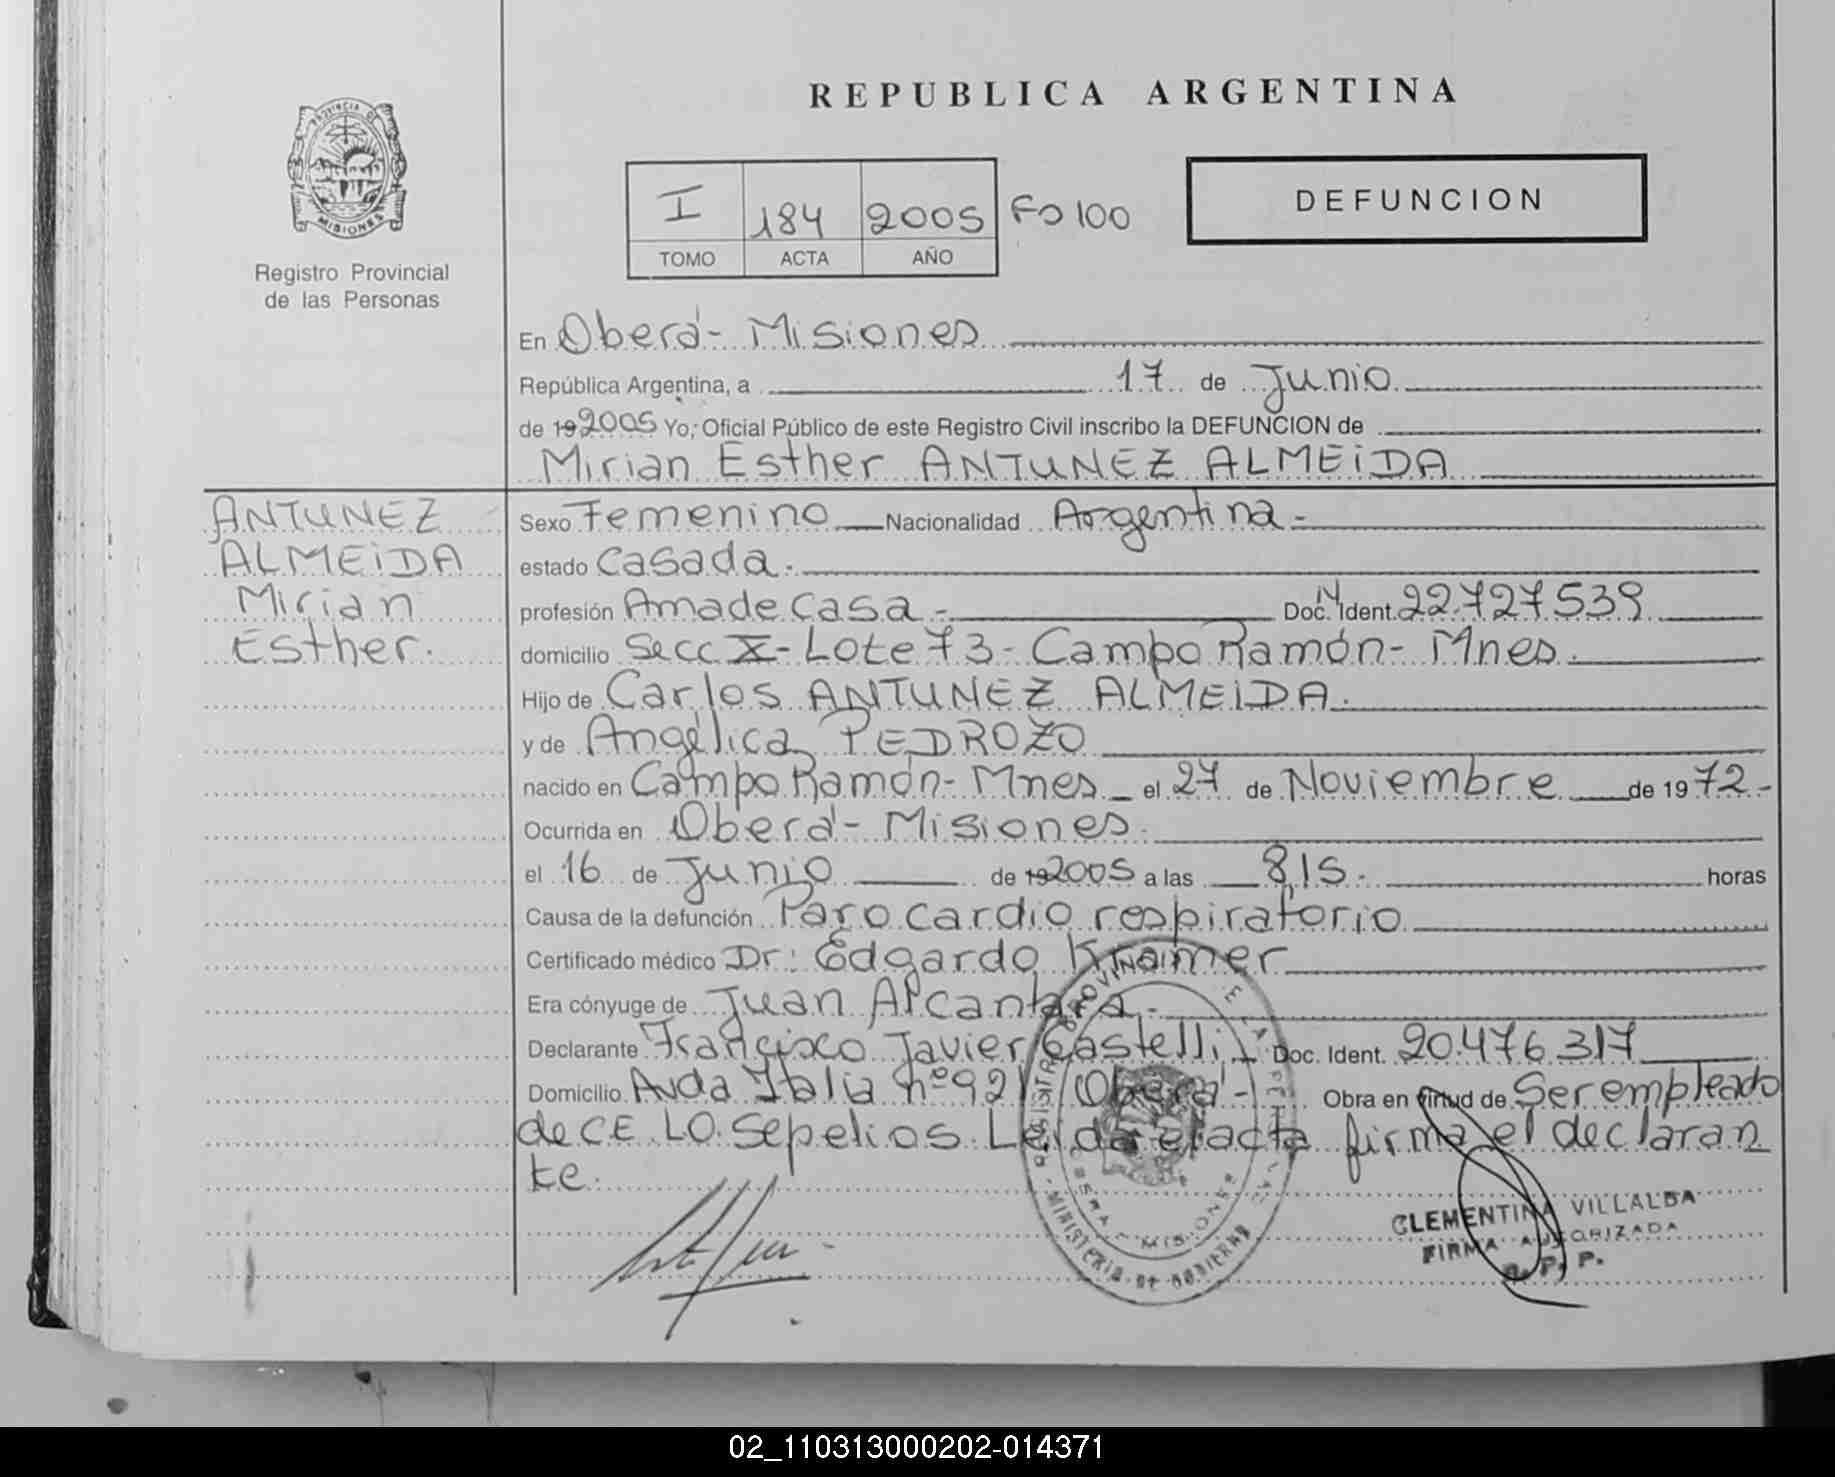 REPUBLICA ARGENTINA
PROVINCIA DE
MISIONES
Registro Provincial
de las Personas
I 184 2005 Fº 100
TOMO ACTA AÑO
DEFUNCION
En Oberá - Misiones
República Argentina, a 17 de Junio
de 19 2005 Yo, Oficial Público de este Registro Civil inscribo la DEFUNCION de
Mirian Esther ANTUNEZ ALMEiDA
ANTUNEZ
ALMEiDA
Mirian
Esther.
Sexo Femenino Nacionalidad Argentina -
estado Casada.
profesión Ama de casa - Doc. N Ident. 22.727.539
domicilio Secc X - Lote 73 - Campo Ramón - Mnes.
Hijo de Carlos ANTUNEZ ALMEiDA.
y de Angélica PEDROZO
nacido en Campo Ramón - Mnes el 27 de Noviembre de 19 72 -
Ocurrida en Oberá - Misiones.
el 16 de Junio de 19 2005 a las 8,15. horas
Causa de la defunción Paro cardio respiratorio
Certificado médico Dr: Edgardo Kramer
Era cónyuge de Juan Alcantara -
Declarante Francisco Javier Castelli Doc. Ident. 20.476.317
Domicilio Avda Italia nº 921 Oberá - Obra en virtud de Ser empleado
de CELO Sepelios. Leida el acta firma el declaran
te.
CLEMENTINA VILLALBA
FIRMA AUTORIZADA
R. P. P.
MINISTERIO DE GOBIERNO
OBERA - MISIONES
02_110313000202-014371